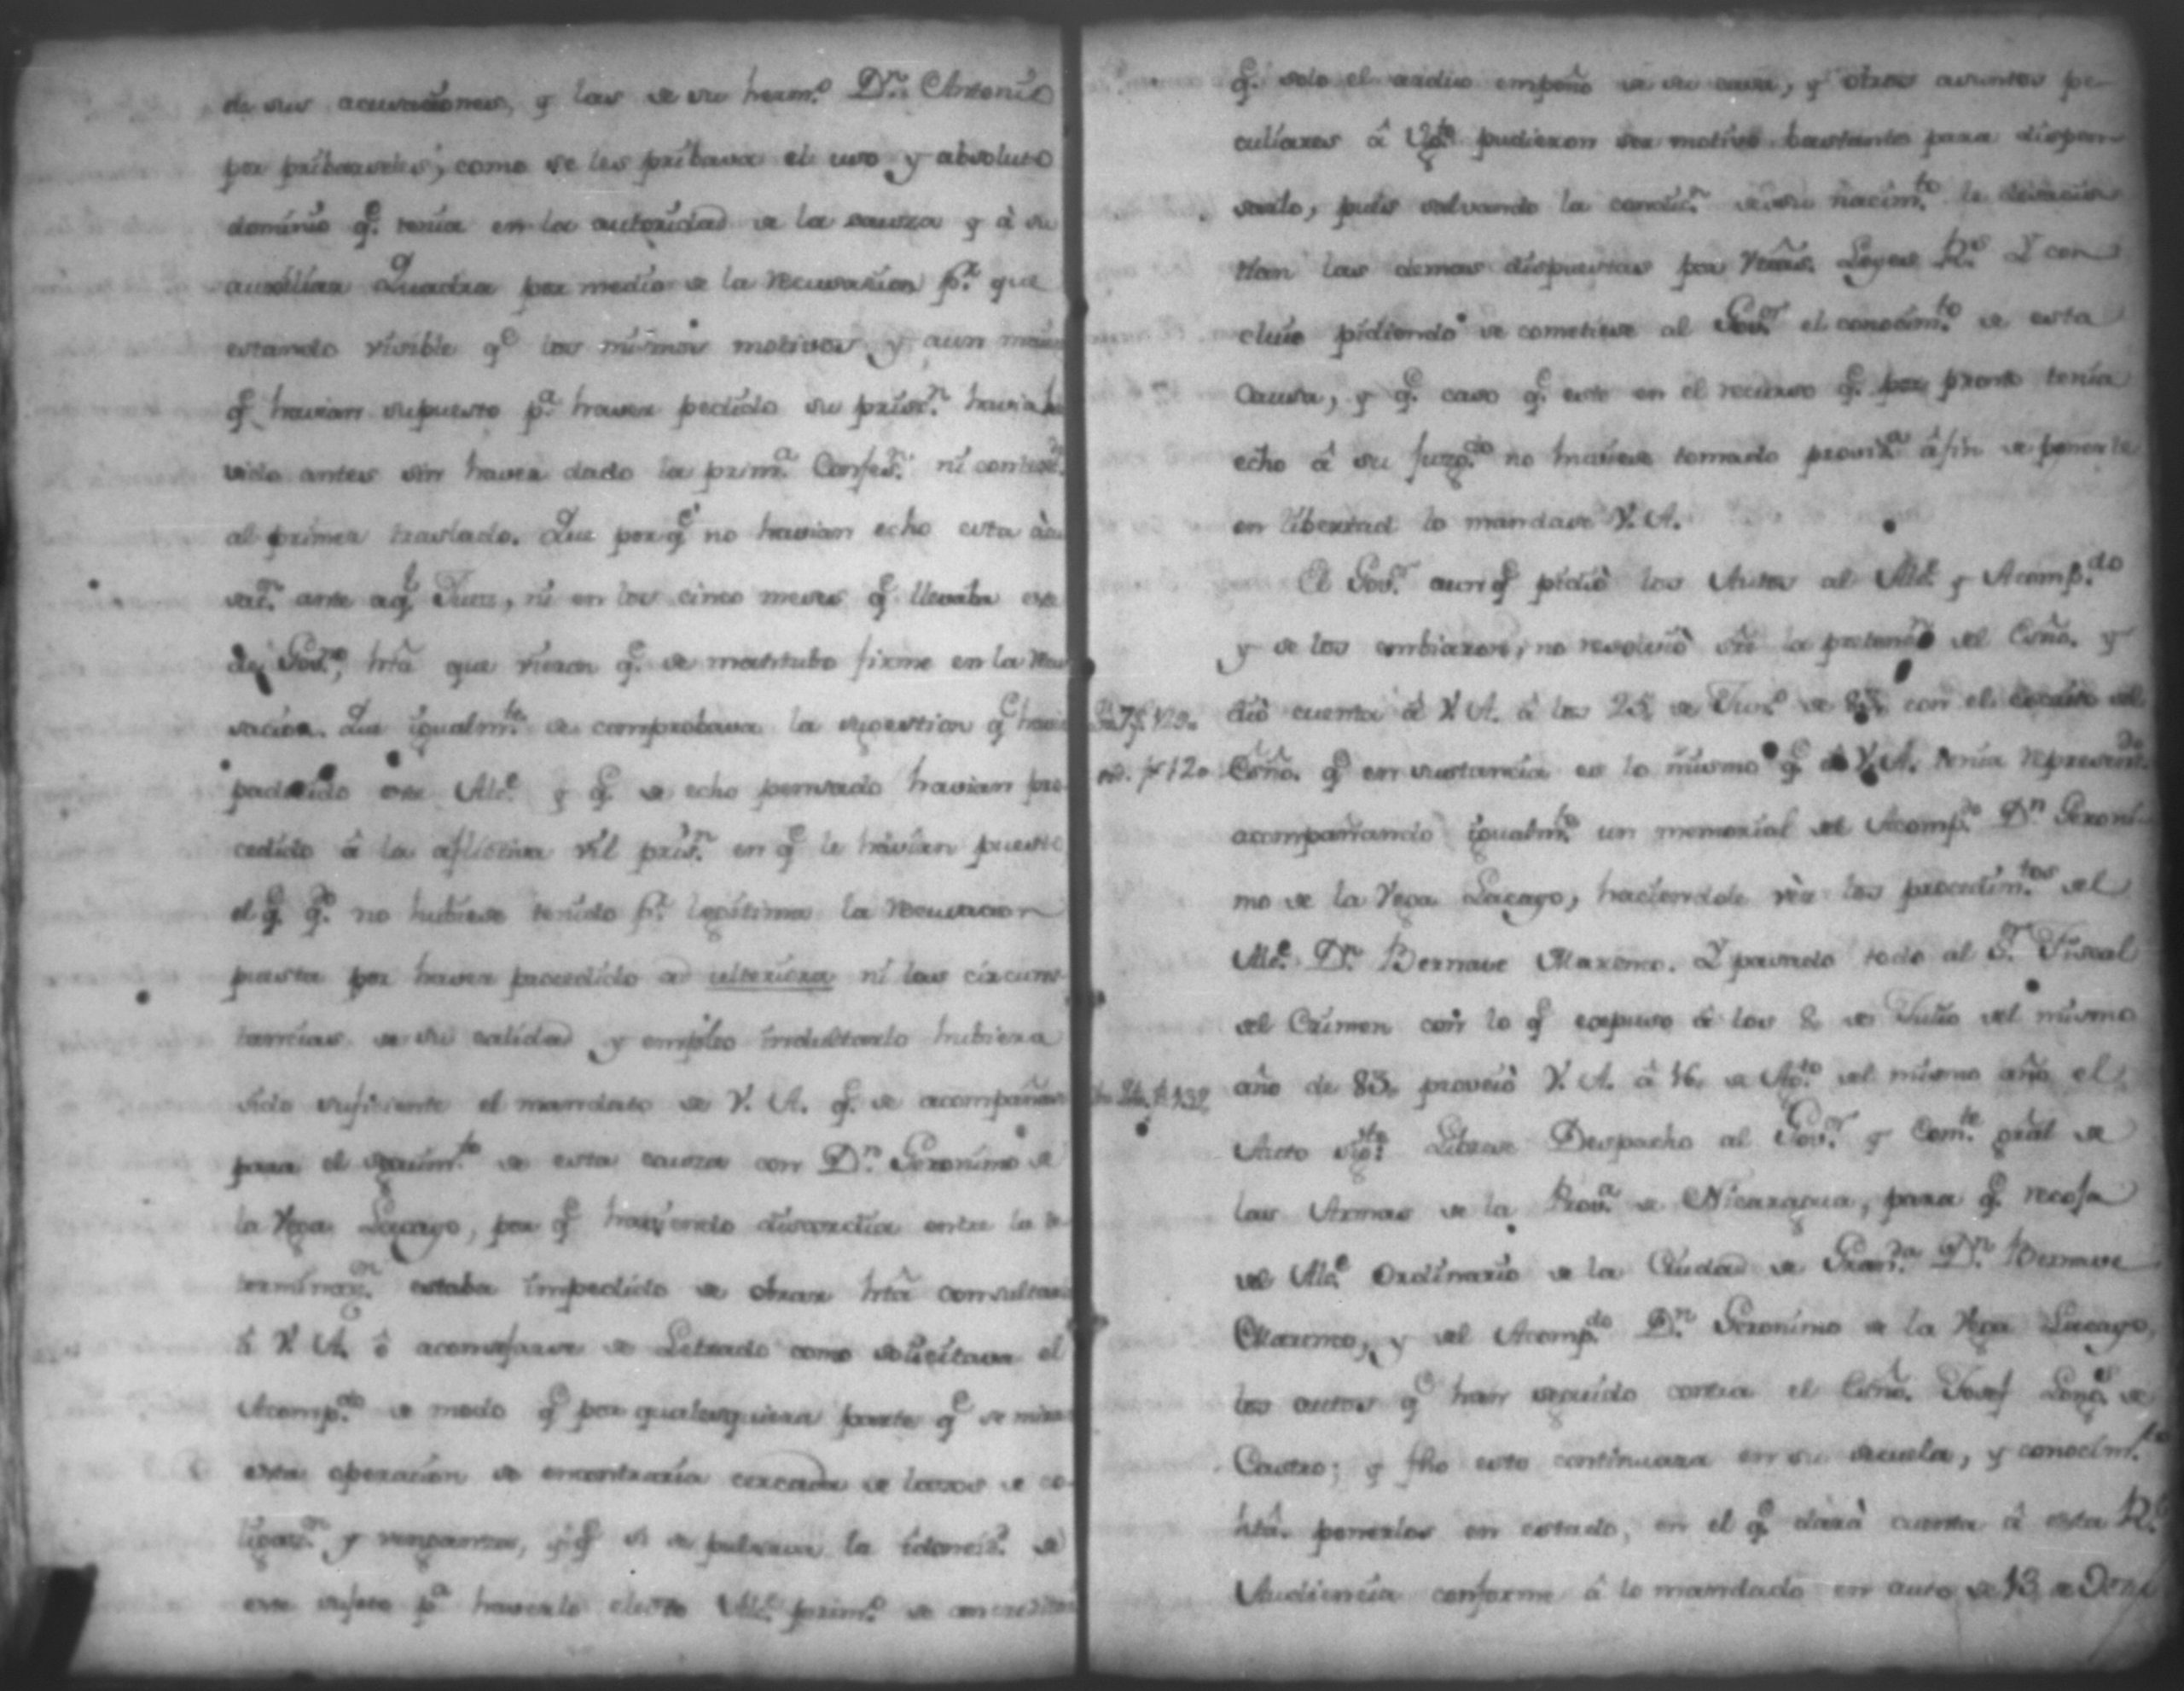 de sus acusaciones, y las de su herm.º D.n Antonio
por pribarseles, como se les pribava el uso y absoluto
dominio q.e tenia en la autoridad de la causa y à su
auxiliar Quadra por medio de la recusacion p.a que
estando visible q.e los mismos motivos y aun mas
q.e havian supuesto p.a haver pedido su pris.n havia
sido antes sin haver dado la prim.a Confes.n ni contest.n
al primer traslado. Que porq.e no havian echo esta
ante aq.l Juez, ni en los cinco meses q.e llevaba
de Gov.r, htã que vieron q.e se mantubo firme en la
sacion. Que igualm.te se comprobava la sugestion q.e
padecido este Alc.e y q.e de echo pensado havian pro
cedido â la aflictiva vil pris.n en q.e le havian puesto
el q.e q.do no hubiese tenido p.r legitima la recusacion
puesta por haver procedido ad ulteriora ni las circuns
tancias de su calidad y empleo indultarlo hubiera
sido suficiente el mandato de V. A. q.e se acompañase
para el seguim.to de esta causa con D.n Geronimo de
la Vega Lacayo, por q.e haviendo discordia entre la de
terminaz.n estaba impedido de obrar htã consultar
â V. A. ô aconsejarse de Letrado como solicitava el
Acomp.do de modo q.e por qualesquiera parte q.e se mira
esta operacion se encontraria cercada de lazos de co
ligaz.n y venganza, y q.e si se pulsava la idoneid.d de
este sujeto p.a haverlo electo Alc.e prim.º se
q.e solo el arduo empeño de su casa, y otros asuntos pe
culiares â pudieron ser motivo bastante para dispen
sarlo, pues salvando la condic.n de su nacim.to le
las demas dispuestas por Vras. Leyes R.s Y con
cluio pidiendo se cometiese al Gov.r el conocim.to de esta
Causa, y q.e caso q.e este en el recurso q.e por pronto tenia
echo â su Juzg.do no huviese tomado provid.a âfin de ponerle
en libertad lo mandase V. A.
El Gov.r aunq.e pidiò los Autos al Alc.e y Acomp.do
y se los embiaron, no resolviò sre la pretens.n del Esño. y
diò cuenta â V. A. â los 25, de Jun.º de 83, con el escrito del
Esño. q.e en sustancia es lo mismo q.e â V. A. tenia represent.do
acompañando igualm.te un memorial del Acomp.do D.n Geroni
mo de la Vega Lacayo, haciendole vèr los procedim.tos del
Alc.e D.n Bernave Maximo. Y pasado todo al S.r Fiscal
del Crimen con lo q.e expuso â los 8 de Julio del mismo
año de 83, proveiò V. A. â 16, de Ag.to del mismo año el
Auto sig.te Librese Despacho al Gov.r y Com.te gral de
las Armas de la Prov.a de Nicaragua, para q.e recoja
del Alc.e Ordinario de la Ciudad de Gran.da D.n Bernave
Maximo, y del Acomp.do D.n Geronimo de la Vega Lacayo,
los autos q.e han seguido contra el Esño. Josef de
Castro; y fho esto continuara en su secuela, y conocim.to
htã. ponerlos en estado, en el q.e darà cuenta â esta R.l
Audiencia conforme â lo mandado en auto de 13, de